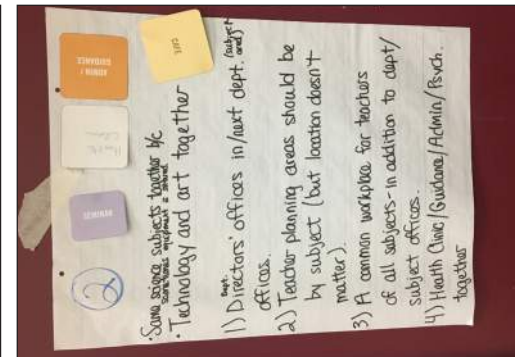 ADMIN /
GUIDANCE
Health
Clinic
2
· Same science subjects together b/c
sometimes equipment is shared
· Technology and art together
1) Dept. Directors' offices in/next dept. (subject area)
offices.
2) Teacher planning areas should be
by subject (but location doesn't
matter).
3) A common workplace for teachers
of all subjects - in addition to dept/
subject offices.
4) Health Clinic/Guidance/Admin/Psych.
together